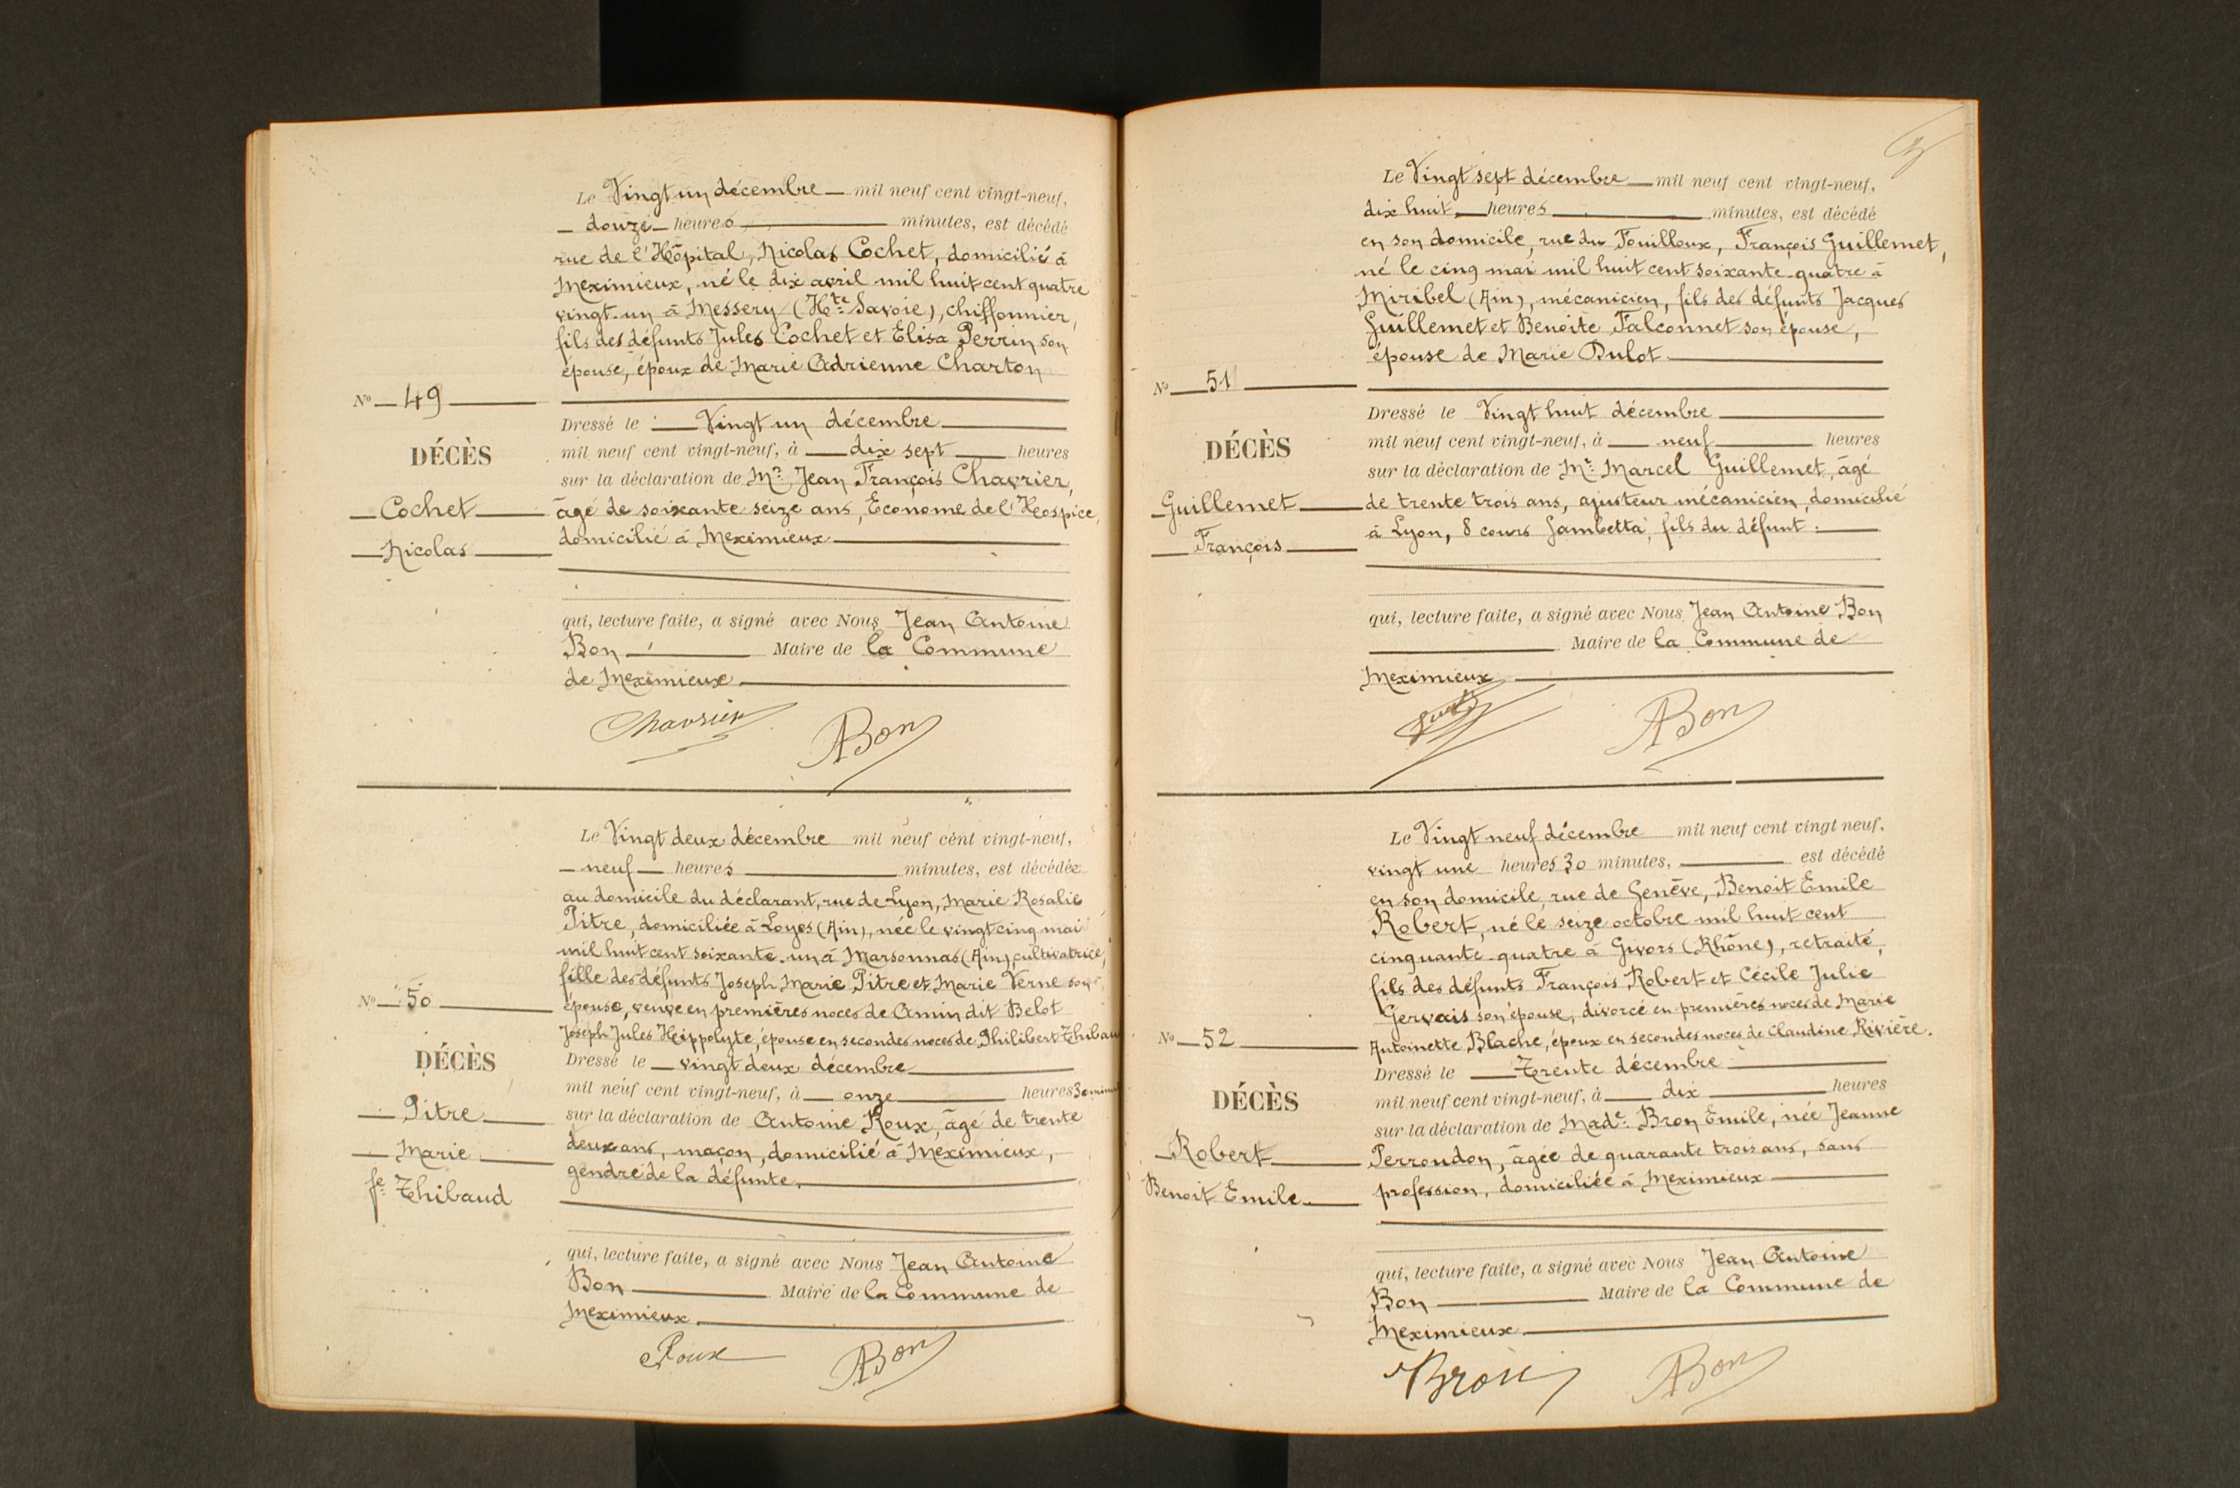 Le Vingt un décembre mil neuf cent vingt-neuf,
douze heures minutes, est décédé
rue de l'Hôpital, Nicolas Cochet, domicilié à
Meximieux, né le dix avril mil huit cent quatre
vingt-un à Messery (Hte Savoie), chiffonnier,
fils des défunts Jules Cochet et Elisa Perrin son
épouse, époux de Marie Adrienne Charton
No 49
DÉCÈS
Cochet
Nicolas
Dressé le Vingt un décembre
mil neuf cent vingt-neuf, à dix sept heures
sur la déclaration de Mr Jean François Chavrier,
âgé de soixante seize ans, Econome de l'Hospice,
domicilié à Meximieux
qui, lecture faite, a signé avec Nous Jean Antoine
Bon Maire de la Commune
de Meximieux
Chavrier ABon
Le Vingt deux décembre mil neuf cent vingt-neuf,
neuf heures minutes, est décédée
au domicile du déclarant, rue de Lyon, Marie Rosalie
Pitre, domiciliée à Loyes (Ain), née le vingt cinq mai
mil huit cent soixante-un à Marsonnas (Ain), cultivatrice,
fille des défunts Joseph Marie Pitre et Marie Verne son
épouse, veuve en premières noces de Amin dit Belot
Joseph Jules Hippolyte, épouse en secondes noces de Philibert Thibau
No 50
DÉCÈS
Pitre
Marie
fe Thibaud
Dressé le vingt deux décembre
mil neuf cent vingt-neuf, à onze heures 30 minu
sur la déclaration de Antoine Roux, âgé de trente
deux ans, maçon, domicilié à Meximieux,
gendre de la défunte.
qui, lecture faite, a signé avec Nous Jean Antoine
Bon Maire de la Commune de
Meximieux
Roux ABon
Le Vingt sept décembre mil neuf cent vingt-neuf,
dix huit heures minutes, est décédé
en son domicile, rue du Fouilloux, François Guillemet,
né le cinq mai mil huit cent soixante-quatre à
Miribel (Ain), mécanicien, fils des défunts Jacques
Guillemet et Benoîte Falconnet son épouse,
épouse de Marie Dulot
No 51
DÉCÈS
Guillemet
François
Dressé le Vingt huit décembre
mil neuf cent vingt-neuf, à neuf heures
sur la déclaration de Mr Marcel Guillemet, âgé
de trente trois ans, ajusteur mécanicien, domicilié
à Lyon, 8 cours Gambetta, fils du défunt :
qui, lecture faite, a signé avec Nous Jean Antoine Bon
Maire de la Commune de
Meximieux
ABon
Le Vingt neuf décembre mil neuf cent vingt neuf,
vingt une heures 30 minutes, est décédé
en son domicile, rue de Genève, Benoit Emile
Robert, né le seize octobre mil huit cent
cinquante-quatre à Givors (Rhône), retraité,
fils des défunts François Robert et Cécile Julie
Gervais son épouse, divorcé en premières noces de Marie
Antoinette Blache, époux en secondes noces de Claudine Rivière.
No 52
DÉCÈS
Robert
Benoit Emile
Dressé le Trente décembre
mil neuf cent vingt-neuf, à dix heures
sur la déclaration de Made Bron Emile, née Jeanne
Perroudon, âgée de quarante trois ans, sans
profession, domiciliée à Meximieux
qui, lecture faite, a signé avec Nous Jean Antoine
Bon Maire de la Commune de
Meximieux
Bron ABon